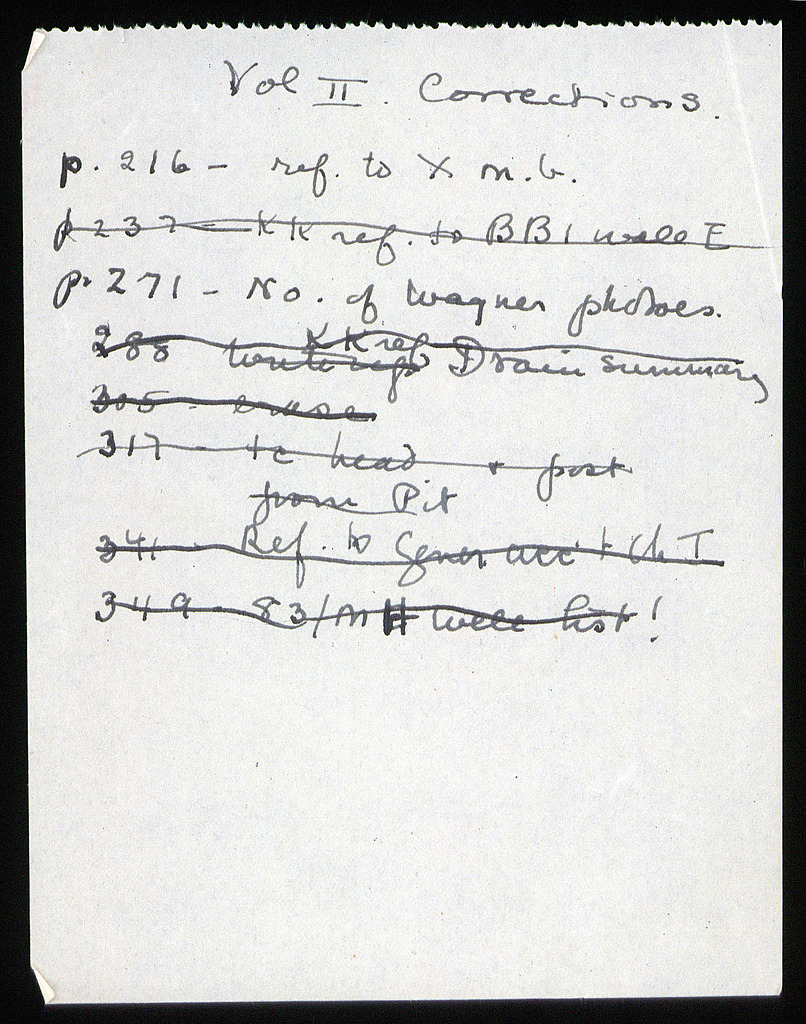 Vol II. Corrections.
p. 216 - ref. to X n.b.
p 237 - KK ref. to BB1 well E
p. 271 - No. of Wagner photoes.
KK ref
288 Drain summary
305 - erase
317 - tc head + post
from Pit
341 - Ref. to Gener acc't Ch I
349 - 83/MH well list!